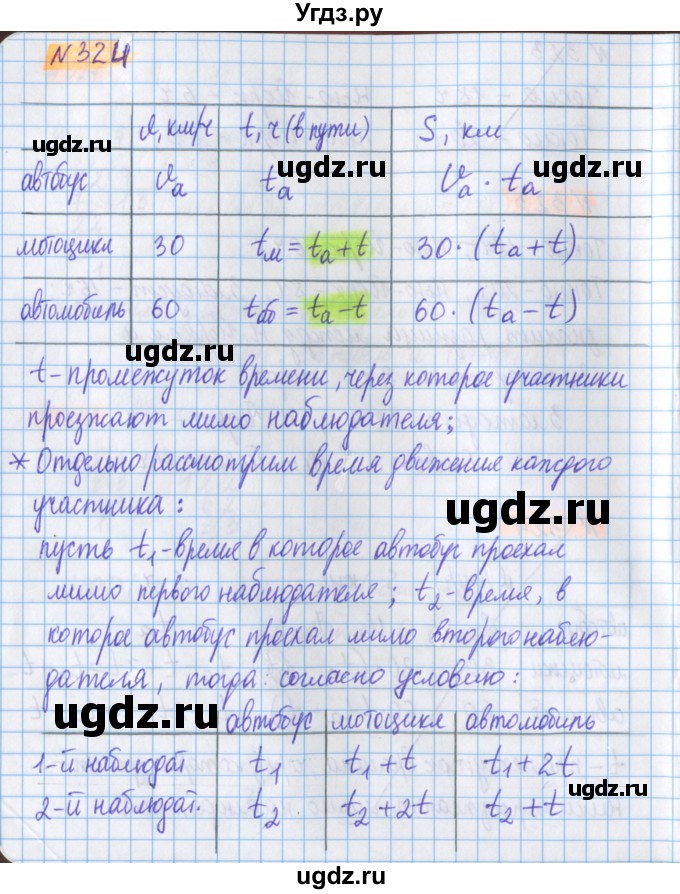 Угдз.ру
N 324
v, км/ч t, ч (в пути) S, км
автобус vₐ tₐ vₐ · tₐ
мотоцикл 30 tм = tₐ + t 30 · (tₐ + t)
автомобиль 60 tаб = tₐ - t 60 · (tₐ - t)
t - промежуток времени, через которое участники
проезжают мимо наблюдателя;
* Отдельно рассмотрим время движение каждого
участника:
пусть t₁ - время в которое автобус проехал
мимо первого наблюдателя; t₂ - время, в
которое автобус проехал мимо второго наблю-
дателя, тогда: согласно условию:
автобус мотоцикл автомобиль
1-й наблюдат t₁ t₁ + t t₁ + 2t
2-й наблюдат. t₂ t₂ + 2t t₂ + t
ugdz.ru
ugdz.ru
ugdz.ru
ugdz.ru
ugdz.ru
ugdz.ru
ugdz.ru
ugdz.ru
ugdz.ru
ugdz.ru